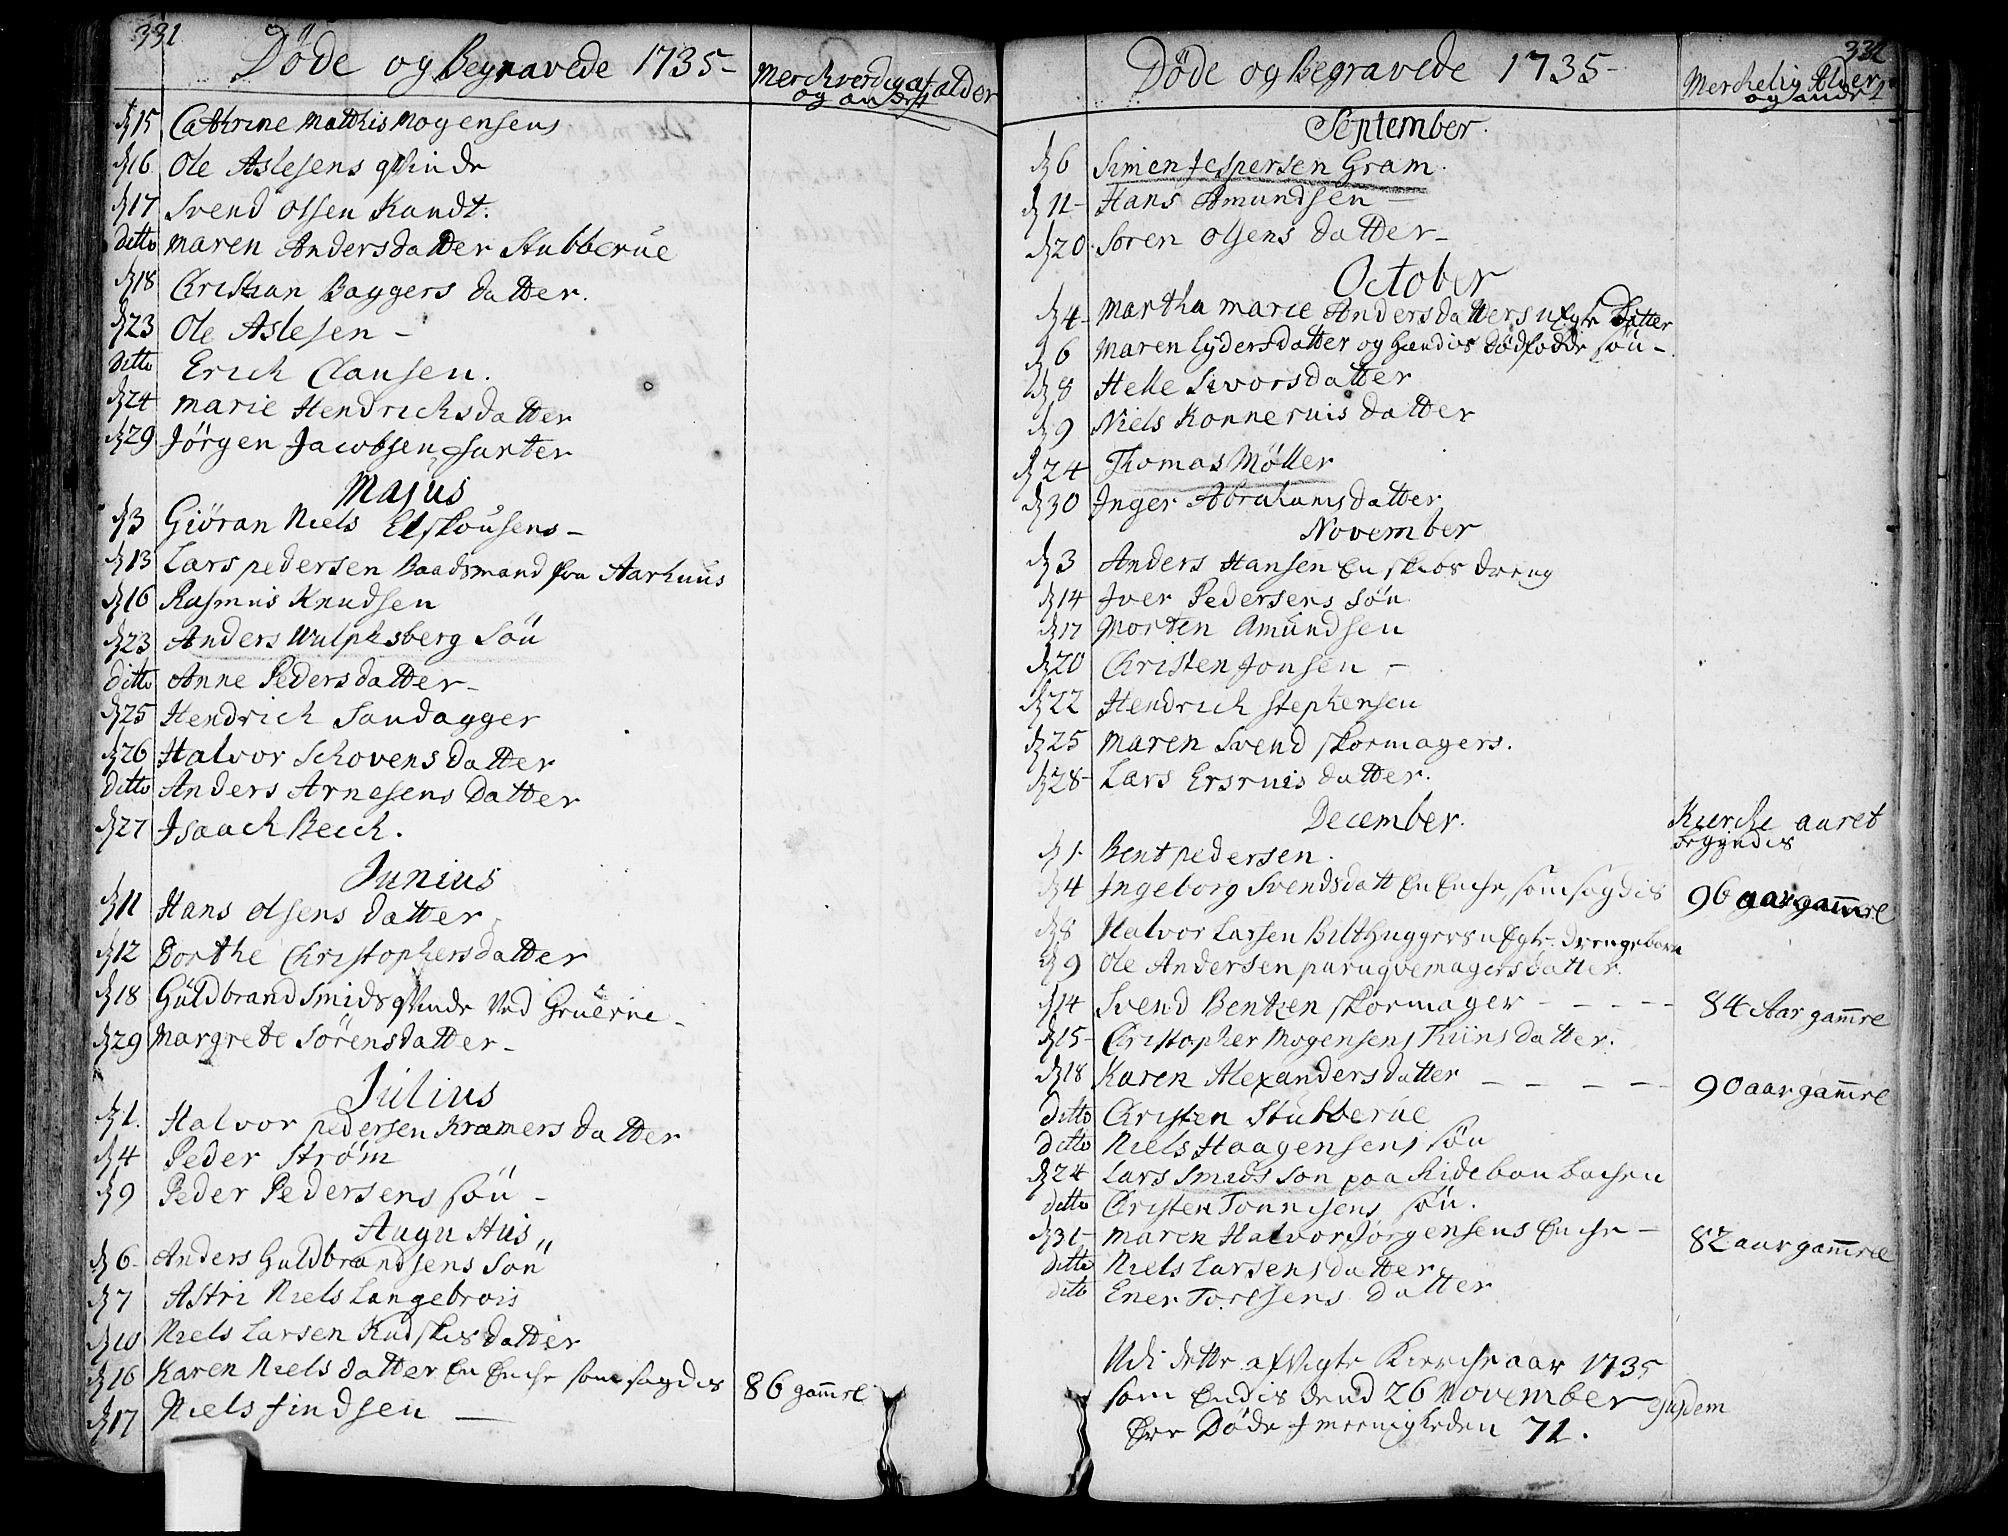 331
Døde og Begravede 1735-
Merckverdig af alder
og andet
d 15 Cathrine Matthis Mogensens
d 16 Ole Aslesens qvinde
d 17 Svend Olsen Kandt.
ditto Maren Andersdatter Stubberue
d 18 Christian Baggers datter.
d 23 Ole Aslesen -
Ditto Erich Clausen.
d 24 Marie Hendrichsdatter
d 29 Jörgen Jacobsen Surter
Majus
d 3 Giöran Niels Elskousens -
d 13 Lars pedersen Baadsmand fra Aarhuus
d 16 Rasmus Knudsen
d 23 Anders Wulphsberg Sön
ditto Anne Pedersdatter -
d 25 Hendrich Sandagger
d 26 Halvor Schovens datter
ditto Anders Arnesens Datter
d 27 Isaach Beich.
Junius
d 11 Hans Olsens datter
d 12 Dorthe Christophersdatter
d 18 Guldbrand Smids qvinde ved Gruerne -
d 29 Margrete Sörensdatter -
Julius
d 1. Halvor pedersen Kræmers datter
d 4 Peder Strøm
d 9 Peder Pedersens sön -
Augustus
d 6 - Anders Guldbrandsens Sön
d 7 Astri Niels Langebrois
d 10 Niels Larsen Kudskes datter
d 16 Karen Nielsdatter en Enche som sagdis 86 gamle
d 17 Niels findsen -
332
Døde og Begravede 1735-
Merchelig Alder
og andet
September.
d 6 Simen Jespersen Gram.
d 11 - Hans Amundsen -
d 20 Soren Olsens datter -
October
d 4 - Martha marie Andersdatters uægte Datter
d 6 Maren Lydersdatter og hendis dødfødde sön -
d 8 Helle Sivorsdatter
d 9 Niels Konneruis datter
d 24 Thomas Møller
d 30 Inger Abrahamsdatter
November
d 3 Anders Hansen en skibs dreng
d 14 Iver Pedersens sön
d 17 Morten Amundsen
d 20 Christen Jonsen -
d 22 Hendrich Stephensen
d 25 Maren Svend skormagers.
d 28 - Lars Ersruis datter.
December.
Kierche aaret
begyndis
d 1 - Bent pedersen.
d 4 Ingeborg Svendsdatt en Enche, som sagdis 96 aar gamle
d 8 Halvor Larsen Bilthuggers uægte drengebarn
d 9 Ole Andersen paruqvemagers datter.
d 14 Svend Bentzen skormager - - - - - 84 Aar gamle
d 15 - Christopher Mogensens Thiins datter.
d 18 Karen Alexandersdatter - - - - - 90 aar gamle
ditto Christen Stubberue
ditto Niels Haagensens sön
d 24 Lars Smids Son paa Ridebanbachen
ditto Christen Tonnesens sön.
d 31 - Maren Halvor Jörgensens Enche - 82 aar gamle
ditto Niels Larsens datter
ditto Ener Toresens datter
Udi dette afvigte Kirche aar 1735
som endis dend 26 November
Ere Døde J meenigheden 71.